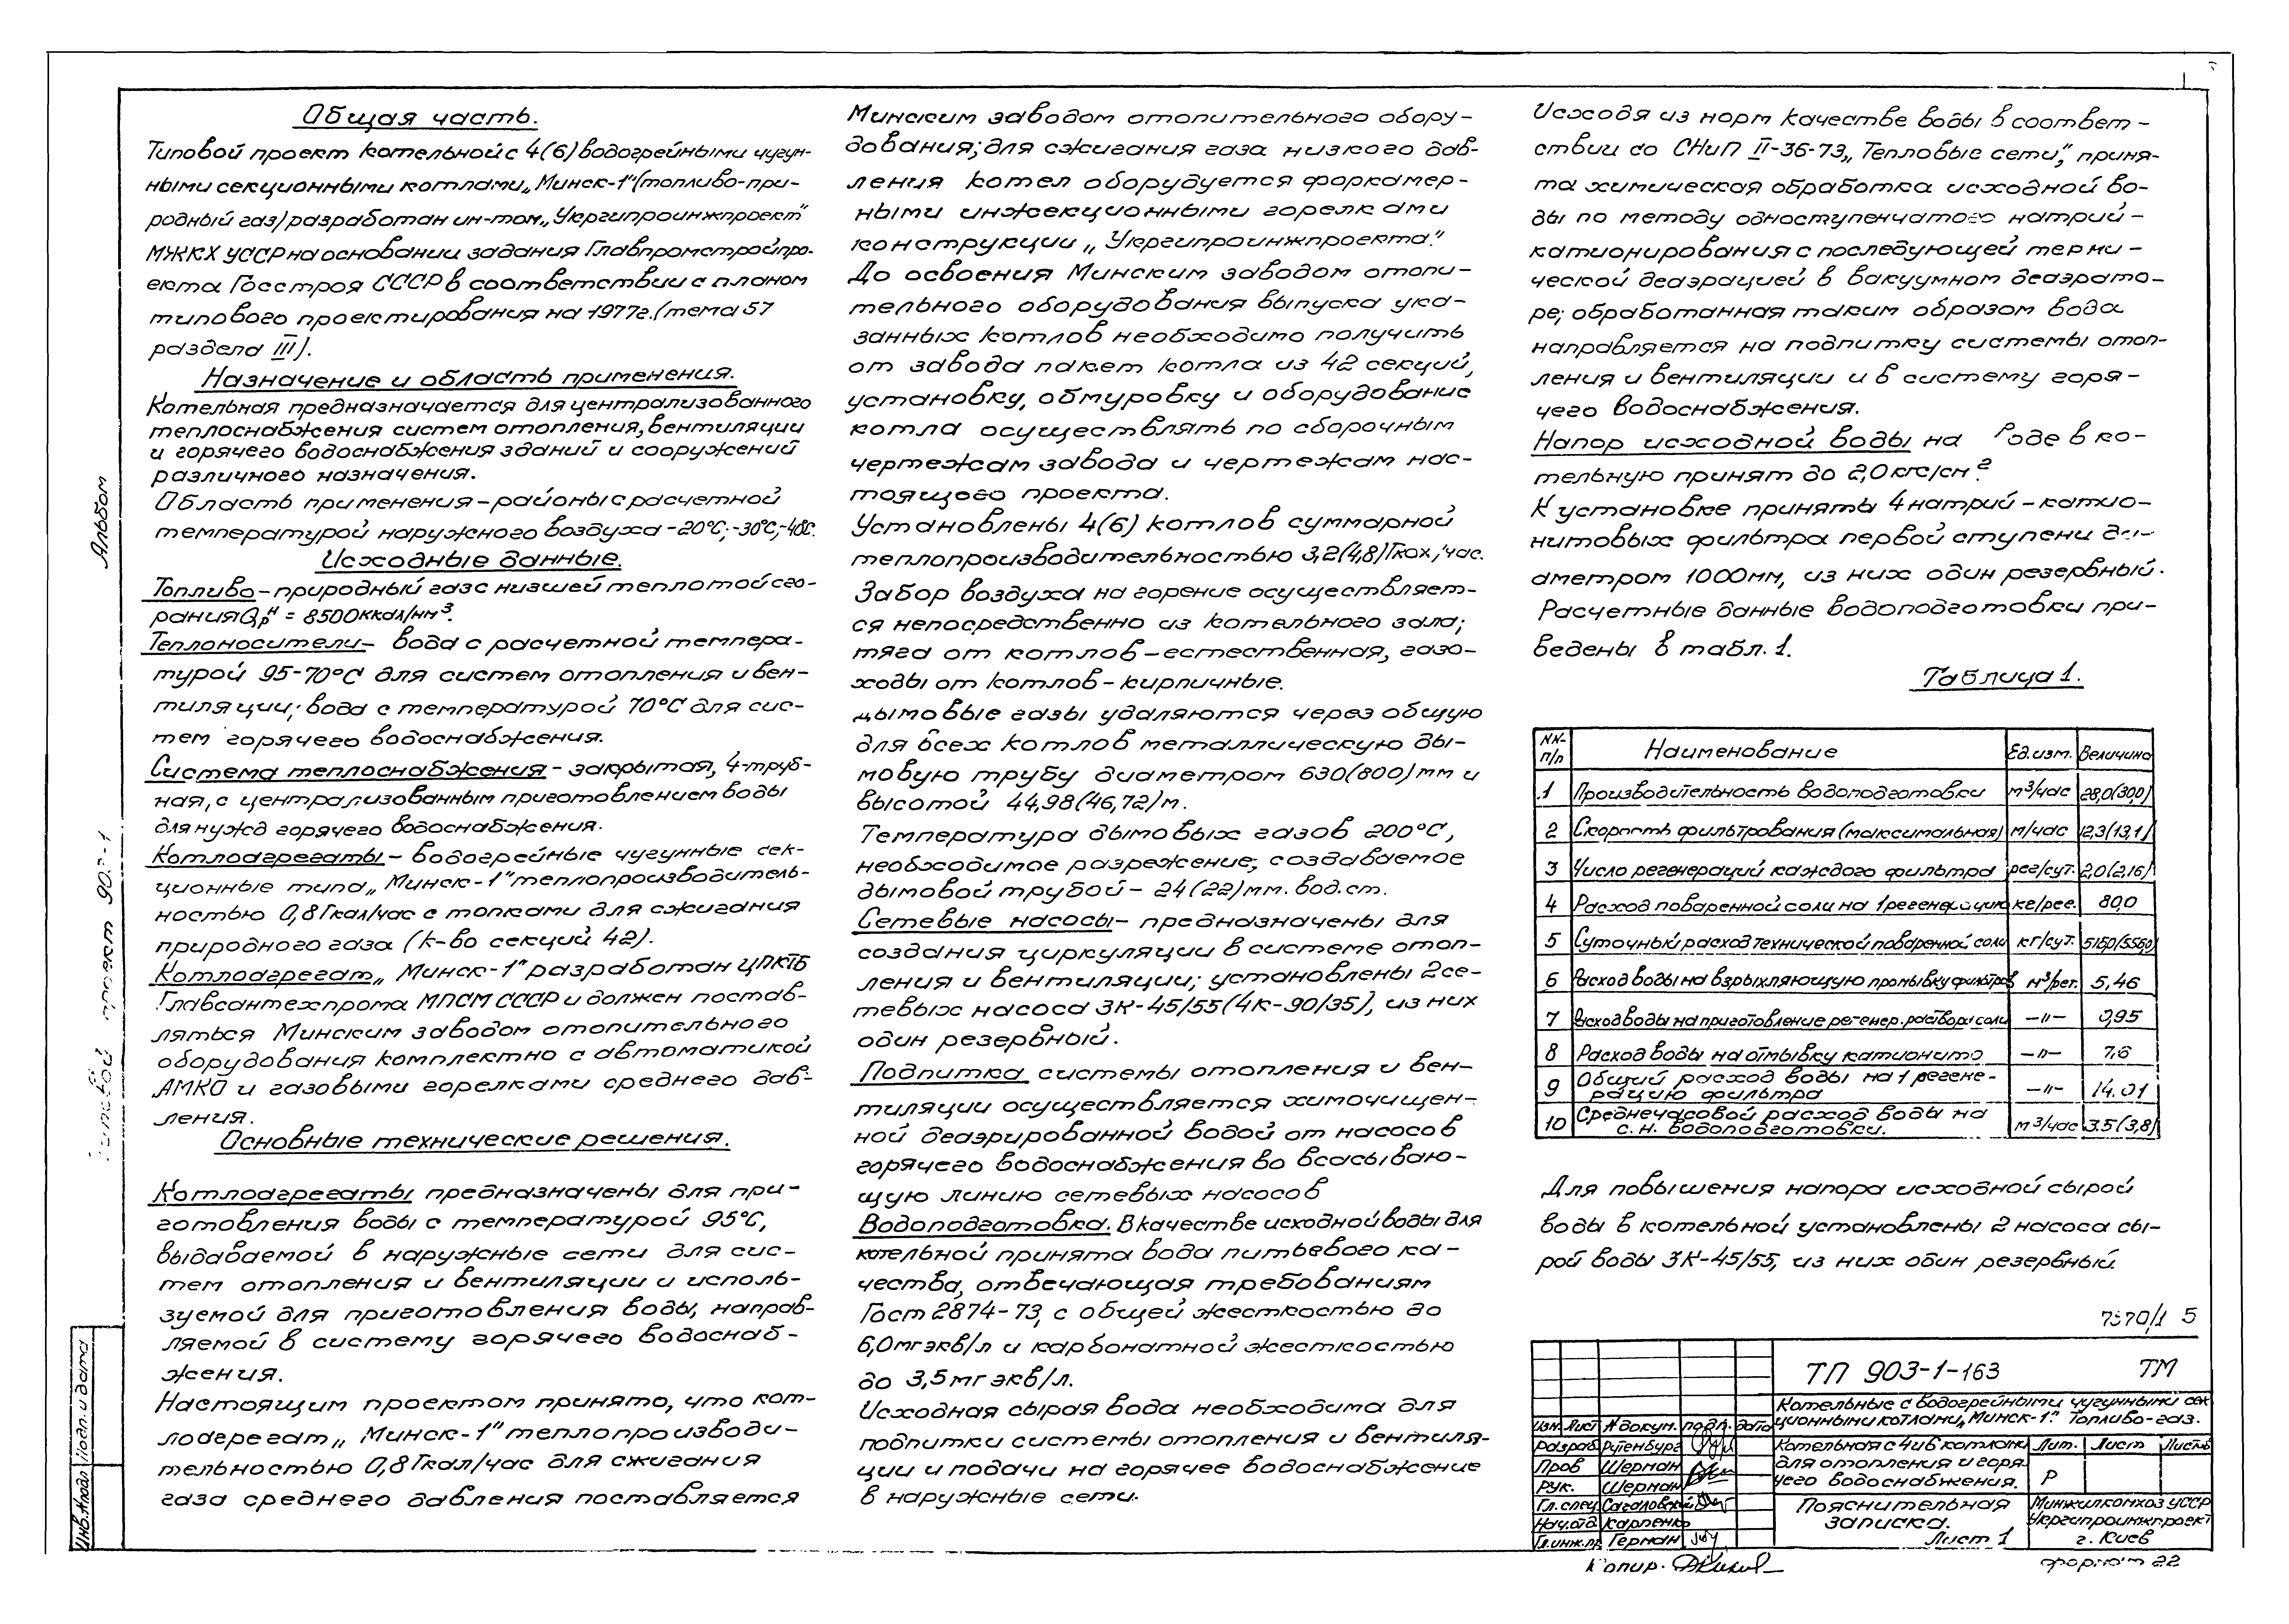 Общая часть.
Типовой проект котельной с 4(6) водогрейными чугун-
ными секционными котлами „Минск-1" (топливо-при-
родный газ) разработан ин-том „Укргипроинжпроект"
МЖКХ УССР на основании задания Главпромстройпро-
екта Госстроя СССР в соответствии с планом
типового проектирования на 1977г. (тема 57
раздела III).
Назначение и область применения.
Котельная предназначается для централизованного
теплоснабжения систем отопления, вентиляции
и горячего водоснабжения зданий и сооружений
различного назначения.
Область применения – районы с расчетной
температурой наружного воздуха -20°С; -30°С; -40°С.
Исходные данные.
Топливо – природный газ с низшей теплотой сго-
рания Qрн = 8500 ккал/нм³.
Теплоносители – вода с расчетной темпера-
турой 95-70°С для систем отопления и вен-
тиляции; вода с температурой 70°С для сис-
тем горячего водоснабжения.
Система теплоснабжения – закрытая, 4-труб-
ная, с централизованным приготовлением воды
для нужд горячего водоснабжения.
Котлоагрегаты – водогрейные чугунные сек-
ционные типа „Минск-1" теплопроизводитель-
ностью 0,8 Гкал/час с топками для сжигания
природного газа (к-во секций 42).
Котлоагрегат „Минск-1" разработан ЦПКТБ
Главсантехпрома МПСМ СССР и должен постав-
ляться Минским заводом отопительного
оборудования комплектно с автоматикой
АМКО и газовыми горелками среднего дав-
ления.
Основные технические решения.
Котлоагрегаты предназначены для при-
готовления воды с температурой 95°С,
выдаваемой в наружные сети для сис-
тем отопления и вентиляции и исполь-
зуемой для приготовления воды, направ-
ляемой в систему горячего водоснаб-
жения.
Настоящим проектом принято, что кот-
лоагрегат „Минск-1" теплопроизводи-
тельностью 0,8 Гкал/час для сжигания
газа среднего давления поставляется
Минским заводом отопительного обору-
дования; для сжигания газа низкого дав-
ления котел оборудуется форкамер-
ными инжекционными горелками
конструкции „Укргипроинжпроекта".
До освоения Минским заводом отопи-
тельного оборудования выпуска ука-
занных котлов необходимо получить
от завода пакет котла из 42 секций,
установку, обмуровку и оборудование
котла осуществлять по сборочным
чертежам завода и чертежам нас-
тоящего проекта.
Установлены 4(6) котлов суммарной
теплопроизводительностью 3,2(4,8)Гкал/час.
Забор воздуха на горение осуществляет-
ся непосредственно из котельного зала;
тяга от котлов – естественная, газо-
ходы от котлов – кирпичные.
Дымовые газы удаляются через общую
для всех котлов металлическую ды-
мовую трубу диаметром 630(800)мм и
высотой 44,98(46,72)м.
Температура дымовых газов 200°С,
необходимое разрежение, создаваемое
дымовой трубой – 24(22)мм. вод. ст.
Сетевые насосы – предназначены для
создания циркуляции в системе отоп-
ления и вентиляции; установлены 2 се-
тевых насоса 3К-45/55 (4К-90/35), из них
один резервный.
Подпитка системы отопления и вен-
тиляции осуществляется химочищен-
ной деаэрированной водой от насосов
горячего водоснабжения во всасываю-
щую линию сетевых насосов
Водоподготовка. В качестве исходной воды для
котельной принята вода питьевого ка-
чества, отвечающая требованиям
Гост 2874-73, с общей жесткостью до
6,0 мг экв/л и карбонатной жесткостью
до 3,5 мг экв/л.
Исходная сырая вода необходима для
подпитки системы отопления и вентиля-
ции и подачи на горячее водоснабжение
в наружные сети.
Исходя из норм качестве воды в соответ-
ствии со СНиП II-36-73 „Тепловые сети", приня-
та химическая обработка исходной во-
ды по методу одноступенчатого натрий-
катионирования с последующей терми-
ческой деаэрацией в вакуумном деаэрато-
ре; обработанная таким образом вода
направляется на подпитку системы отоп-
ления и вентиляции и в систему горя-
чего водоснабжения.
Напор исходной воды на в ко-
тельную принят до 2,0 кгс/см²
К установке приняты 4 натрий-катио-
нитовых фильтра первой ступени ди-
аметром 1000мм, из них один резервный.
Расчетные данные водоподготовки при-
ведены в табл. 1.
Таблица 1.
NN п/п Наименование Ед. изм. Величина
1 Производительность водоподготовки м³/час 28,0(30,0)
2 Скорость фильтрования (максимальная) м/час 12,3(13,1)
3 Число регенераций каждого фильтра рег/сут. 2,0(2,16)
4 Расход поваренной соли на 1 регенерацию кг/рег. 80,0
5 Суточный расход технической поваренной соли кг/сут.
6 Расход воды на взрыхляющую промывку фильтров м³/рег. 5,46
7 Расход воды на приготовление регенер. раствора соли –"– 0,95
8 Расход воды на отмывку катионита –"– 7,6
9 Общий расход воды на 1 регене-
рацию фильтра –"– 14.01
10 Среднечасовой расход воды на
с.н. водоподготовки. м³/час 3.5(3,8)
Для повышения напора исходной сырой
воды в котельной установлены 2 насоса сы-
рой воды 3К-45/55, из них один резервный.
5
ТП 903-1-163 ТМ
Котельные с водогрейными чугунными сек
ционными котлами „Минск-1". Топливо-газ.
Изм. Лист N докум. подп. дата
Разраб. Рутенбург
Пров Шерман
Рук. Шерман
Гл. спец. Сагаловский
Нач. отд. Карпенко
Гл. инж. пр. Герман
Котельная с 4 и 6 котлами
для отопления и горя-
чего водоснабжения.
Лит. Лист Листов
Р
Пояснительная
записка.
Лист 1
Минжилкомхоз УССР
Укргипроинжпроект
г. Киев
Копир.
формат 22
Альбом
Типовой проект 903-1
Подп. и дата
Инв. N подл